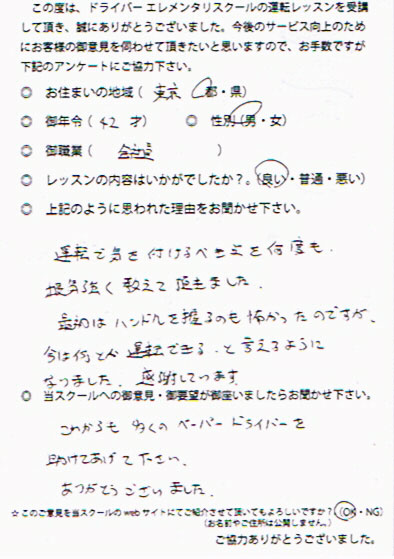 この度は、ドライバー エレメンタリスクールの運転レッスンを受講
して頂き、誠にありがとうございました。今後のサービス向上のため
にお客様の御意見を伺わせて頂きたいと思いますので、お手数ですが
下記のアンケートにご協力下さい。
◎ お住まいの地域（ 東京 都・県）
◎ 御年令（ 42 才） ◎ 性別（男・女）
◎ 御職業（ 会社員 ）
◎ レッスンの内容はいかがでしたか？。（良い・普通・悪い）
◎ 上記のように思われた理由をお聞かせ下さい。
運転で気を付けるべき点を何度も
根気強く教えて頂きました。
最初はハンドルを握るのも怖かったのですが、
今は何とか運転できる。と言えるように
なりました。感謝しています。
◎ 当スクールへの御意見・御要望が御座いましたらお聞かせ下さい。
これからも 多くの ペーパードライバーを
助けてあげて下さい。
ありがとうございました。
☆このご意見を当スクールのwebサイトにてご紹介させて頂いてもよろしいですか？（OK・NG）
（お名前やご住所は公開しません。）
ご協力ありがとうございました。